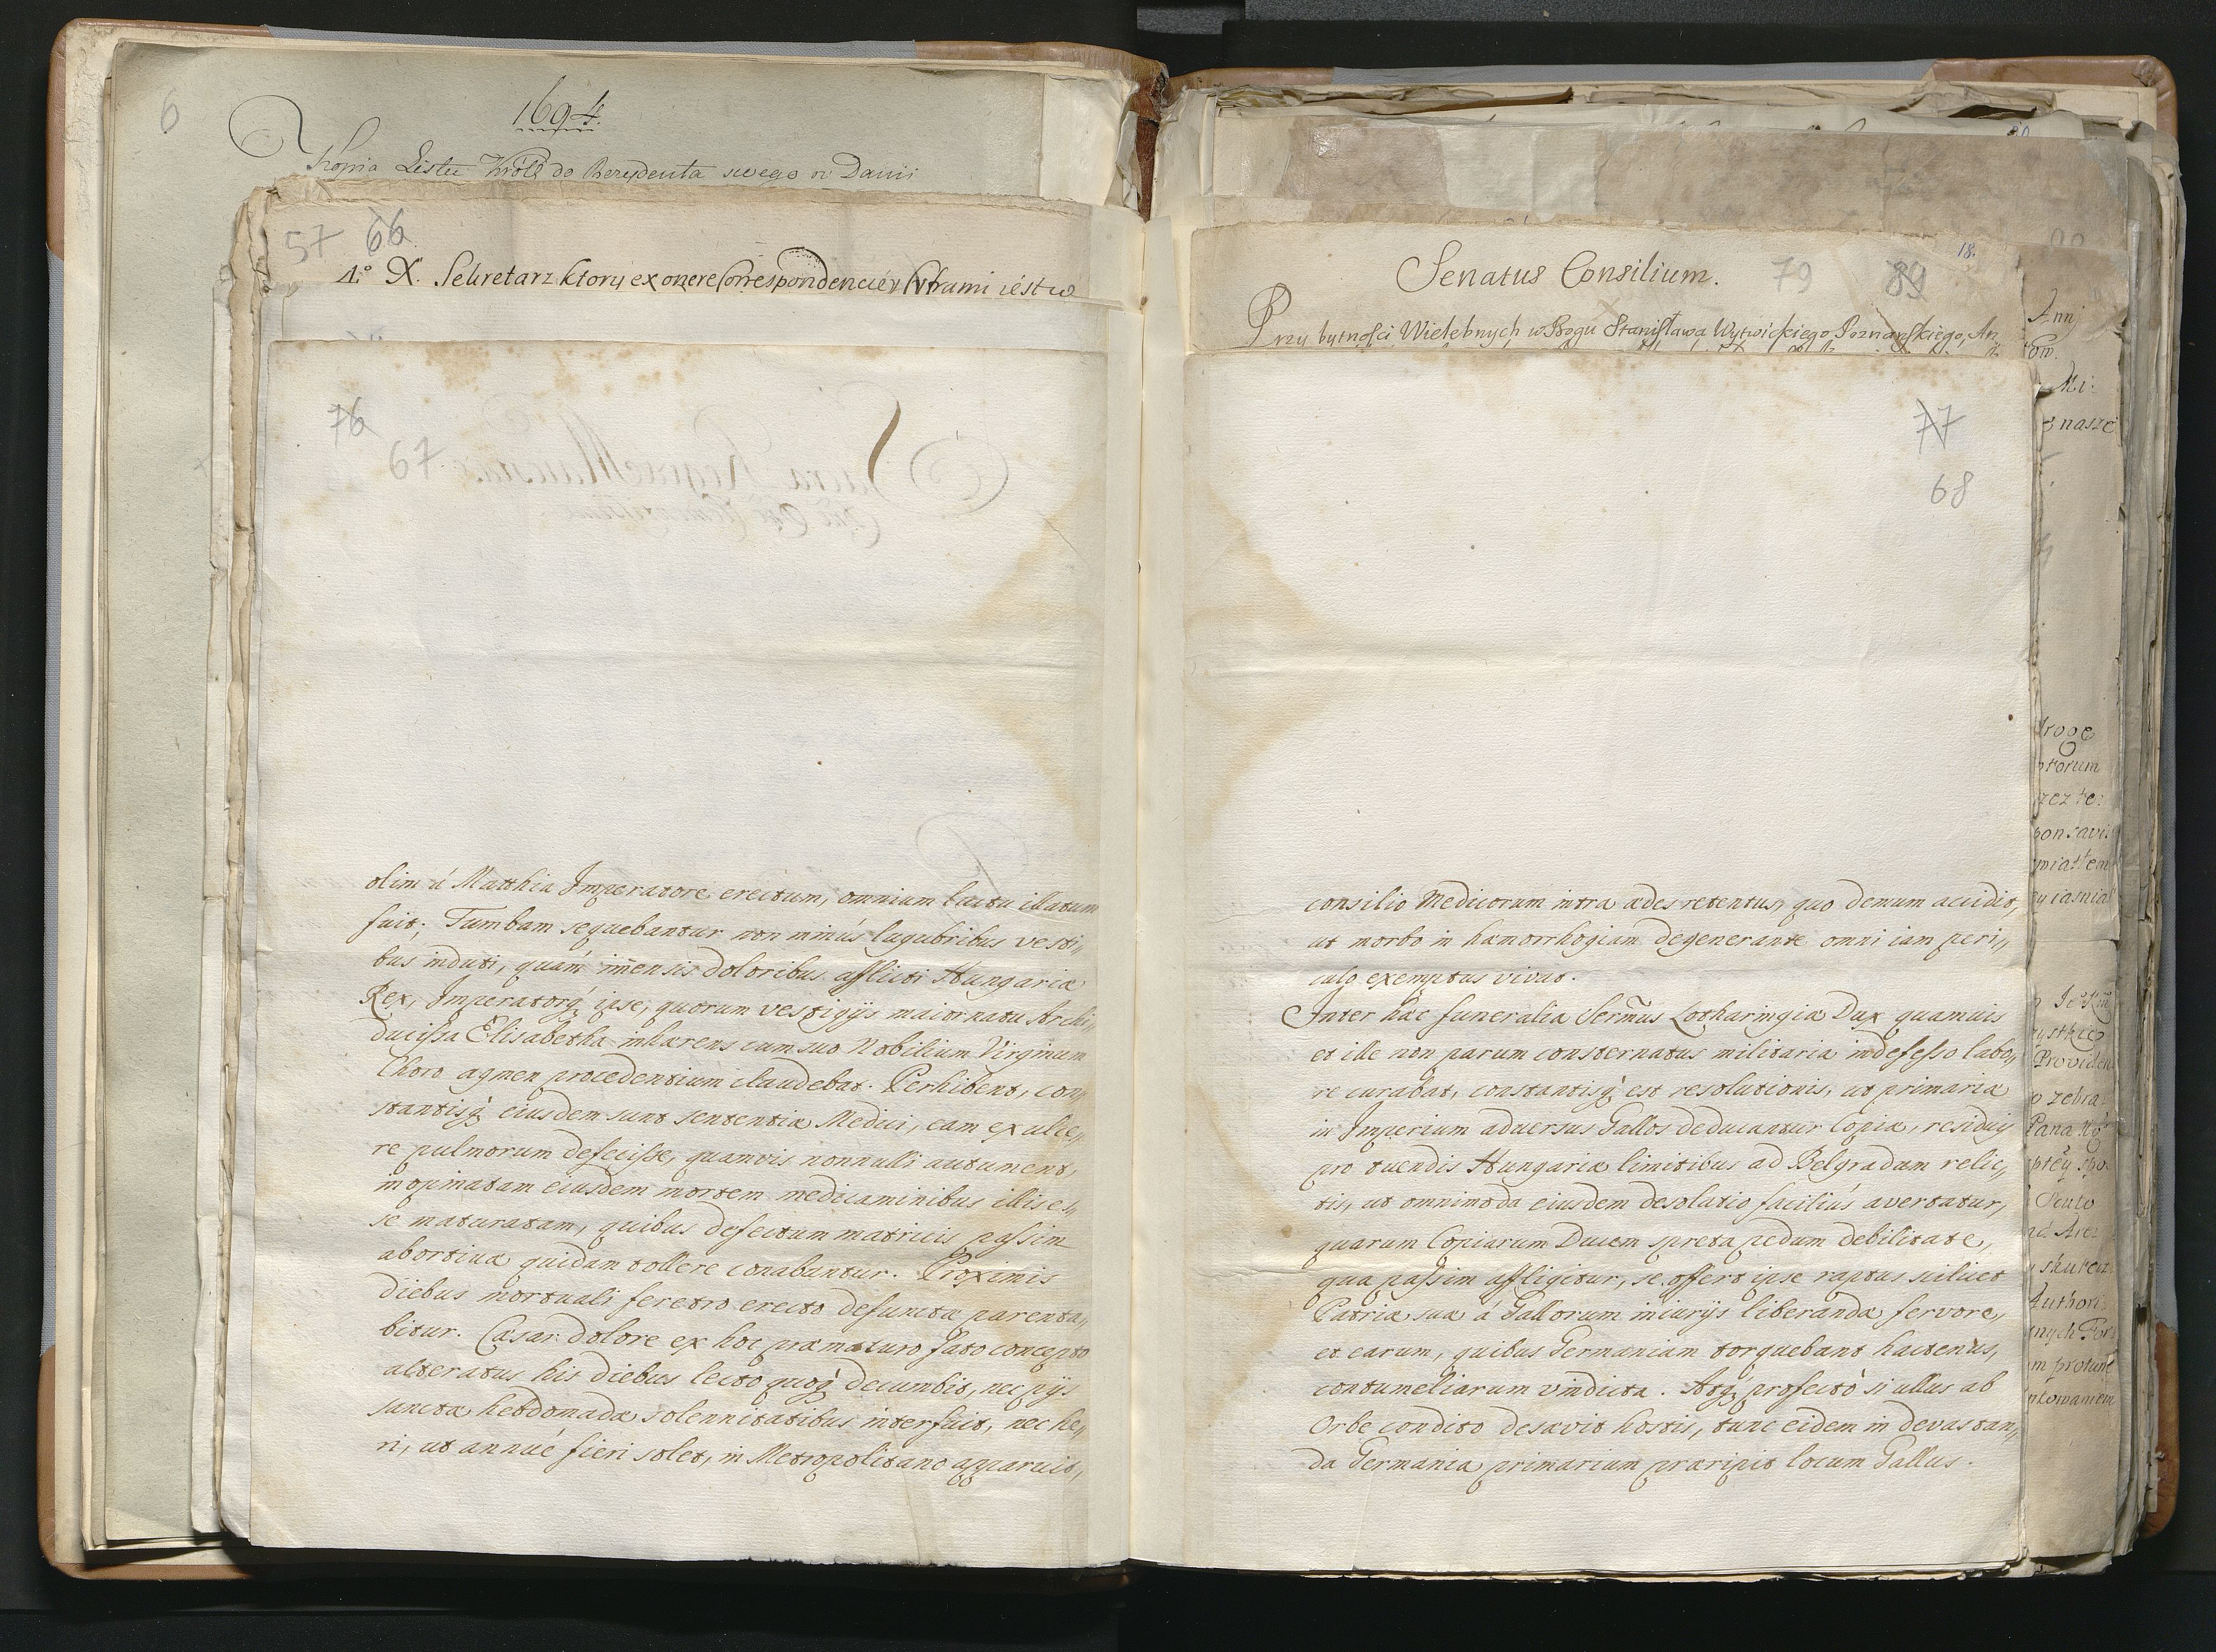 6
1694.
Kopia Listu Król do Rezydenta swego w Danii
57 66
1° X. Sekretarz ktory ex onere Correspondenciey iest w
76
67
olim á Matthia Imperatore erectum, omnium luctu illatum
fuit; Tumbam sequebantur non minús lugubribus vesti„
bus induti, quám im̃ensis doloribus afflicti Hungariæ
Rex, Imperatorq́ ipse, quorum vestigijs maior natu Archi„
ducissa Elisabetha inhærens cum suo Nobilium Virginum
Choro agmen procedentium claudebat. Perhibent, con„
stantisq́ eiusdem sunt sententiæ Medici, eam ex ulce„
re pulmorum defecisse, quamvis nonnulli autument,
inopinatam eiusdem mortem medicaminibus illis es„
se maturatam, quibus defectum matricis passim
abortiva quidam tollere conabantur. Proximis
diebus mortuali feretro erecto defunctæ parenta„
bitur. Cæsar dolore ex hoc præmaturo fato concepto
alteratus his diebus lecto quoq́ decumbit, nec pijs
sanctæ hebdomadæ solennitatibus interfuit, nec he„
ri, ut annué fieri solet, in Metropolitano apparuit,
Senatus Consilium. 79 89
18.
Przy bytności Wielebnych w Bogu Stanisława Wytwickiego Poznańskiego, An
77
68
consilio Medicorum intra ædes retentus, quo demum accidit,
ut morbo in hæmorrhogiam degenerante omni iam peri„
culo exemptus vivat.
Inter hæc funeralia Serm̃us Lotharingiæ Dux quamuis
et ille non parum consternatus militaria indefesso labo„
re curabat, constantisq́ est resolutionis, ut primaria
in Imperium adversus Gallos deducantur Copiæ, residuis
pro tuendis Hungariæ limitibus ad Belgradum relic„
tis, ut omnimoda eiusdem desolatio faciliús avertatur,
quarum Copiarum Ducem spreta pedum debilitate,
qua passim affligitur, se offert ipse raptus scilicet
Patriæ suæ á Gallorum iniurijs liberandæ fervore,
et earum, quibus Germaniam torquebant hactenús,
contumeliarum vindicta. Atq́ profectó si ullus ab
Orbe condito desævit hostis, tunc eidem in devastan„
da Germania primarium præripit locum Gallus.